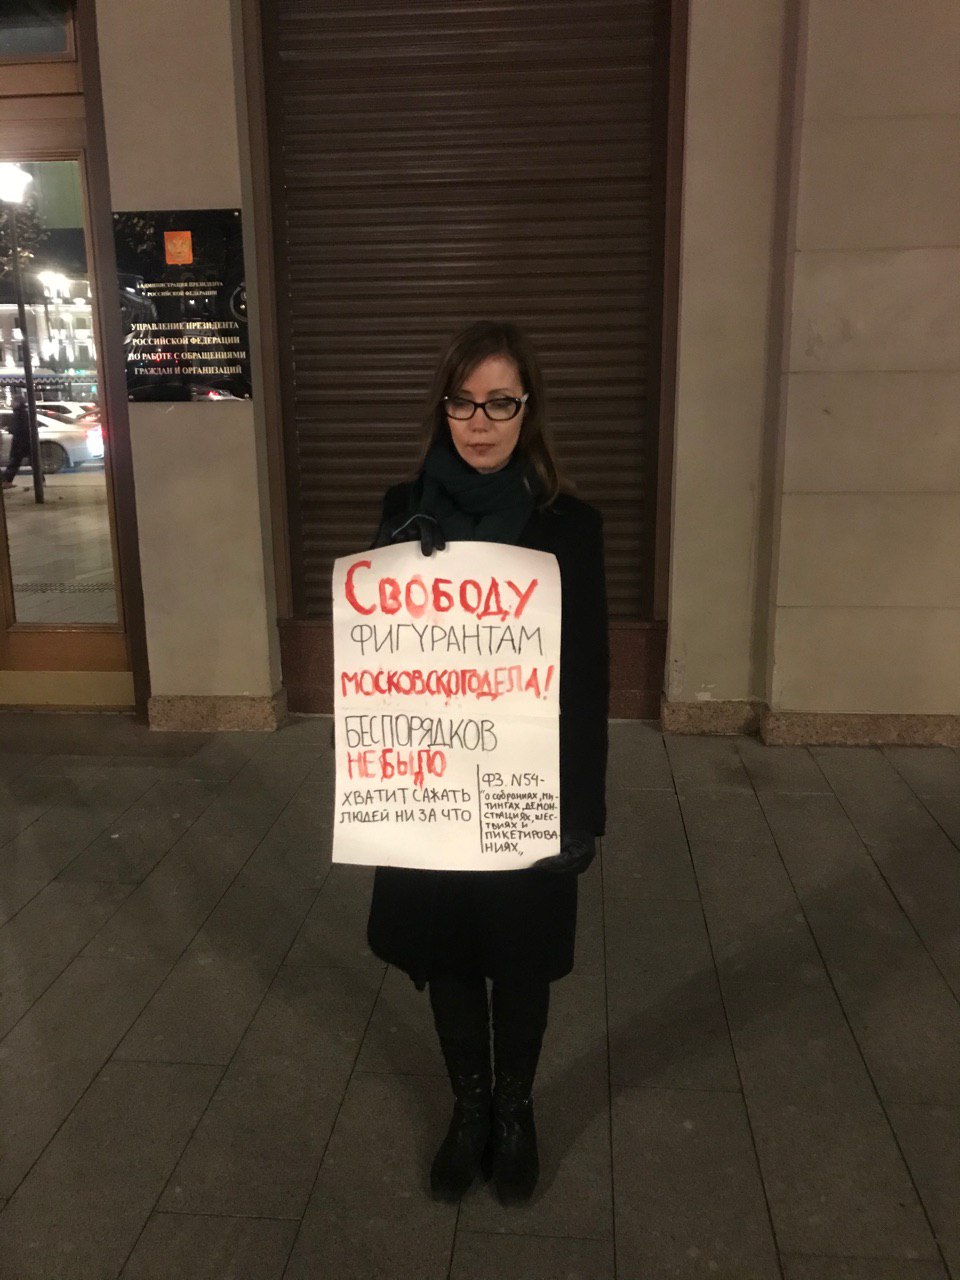 АДМИНИСТРАЦИЯ ПРЕЗИДЕНТА
РОССИЙСКОЙ ФЕДЕРАЦИИ
УПРАВЛЕНИЕ ПРЕЗИДЕНТА
РОССИЙСКОЙ ФЕДЕРАЦИИ
ПО РАБОТЕ С ОБРАЩЕНИЯМИ
ГРАЖДАН И ОРГАНИЗАЦИЙ
СВОБОДУ
ФИГУРАНТАМ
МОСКОВСКОГО ДЕЛА!
БЕСПОРЯДКОВ
НЕ БЫЛО
ХВАТИТ САЖАТЬ
ЛЮДЕЙ НИ ЗА ЧТО
ФЗ. N54-
"О собраниях, ми-
тингах, демон-
страциях, шес-
твиях и
ПИКЕТИРОВА-
НИЯХ„